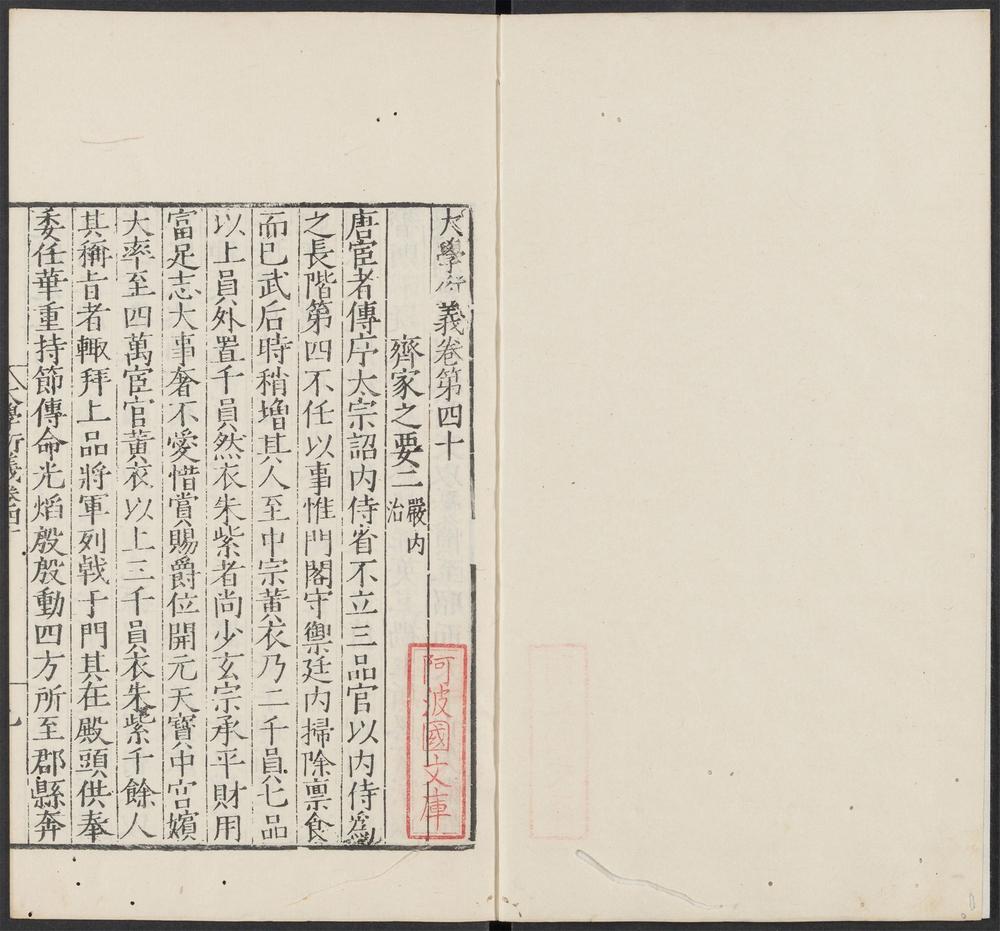 大學衍義卷第四十
齊家之要二 嚴内治
唐宦者傳序太宗詔内侍省不立三品官以内侍爲
之長階第四不任以事惟門閤守禦廷内掃除禀食
而已武后時稍增其人至中宗黄衣乃二千員七品
以上員外置千員然衣朱紫者尚少玄宗承平財用
富足志大事奢不愛惜賞賜爵位開元天寶中宫嬪
大率至四萬宦官黄衣以上三千員衣朱紫千餘人
其稱旨者輙拜上品將軍列戟于門其在殿頭供奉
委任華重持節傳命光焰殷殷動四方所至郡縣奔
大學衍義卷四十
阿波國文庫